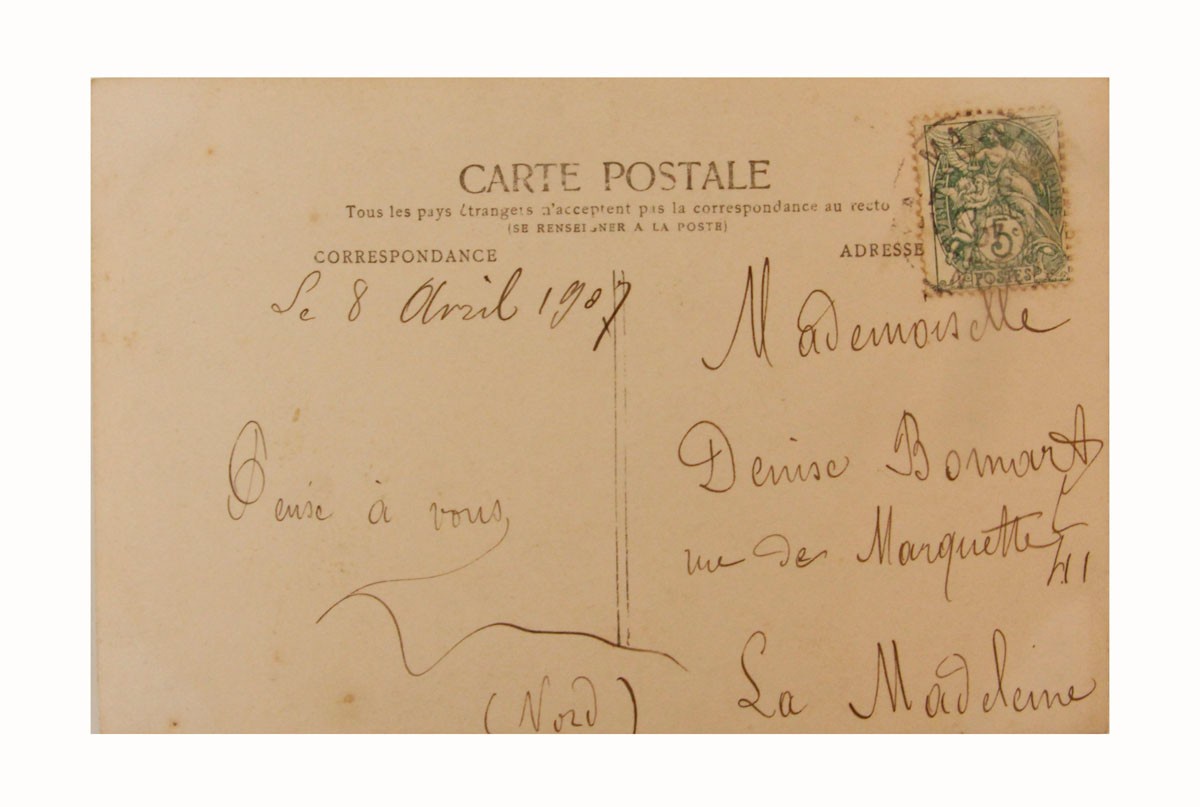 CARTE POSTALE
Tous les pays étrangers n'acceptent pas la correspondance au recto
(SE RENSEIGNER A LA POSTE)
CORRESPONDANCE
ADRESSE
Le 8 Avril 1907
Pense à vous
Mademoiselle
Denise Bomart
rue de Marquette 41
La Madeleine
(Nord)
5c
POSTES